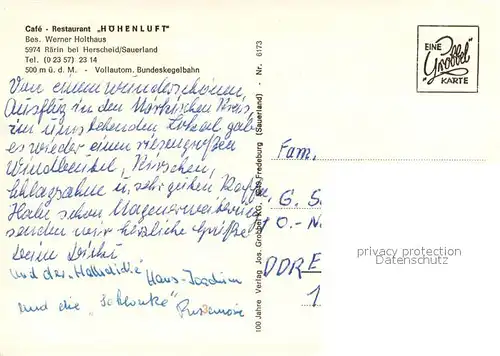 Café - Restaurant „HÖHENLUFT"
Bes. Werner Holthaus
5974 Rärin bei Herscheid/Sauerland
Tel. (0 23 57) 23 14
500 m ü. d. M. - Vollautom. Bundeskegelbahn
Von einem wunderschönen
Ausflug in den Märkischen Kreis
im umstehenden Lokal gab
es wieder einen riesengroßen
Windbeutel, Kirschen,
Schlagsahne u. sehr guten Kaffee.
Habe schon Magenerweiterung
senden wir herzliche Grüße
und der Hans-Joachim
und die „Schlonke" Rosemarie
100 Jahre Verlag Jos. Grobbel KG, Fredeburg (Sauerland) - Nr. 6173
EINE
Grobbel
KARTE
Fam.
G. S
O.-N
DDR E
1
privacy protection
Datenschutz